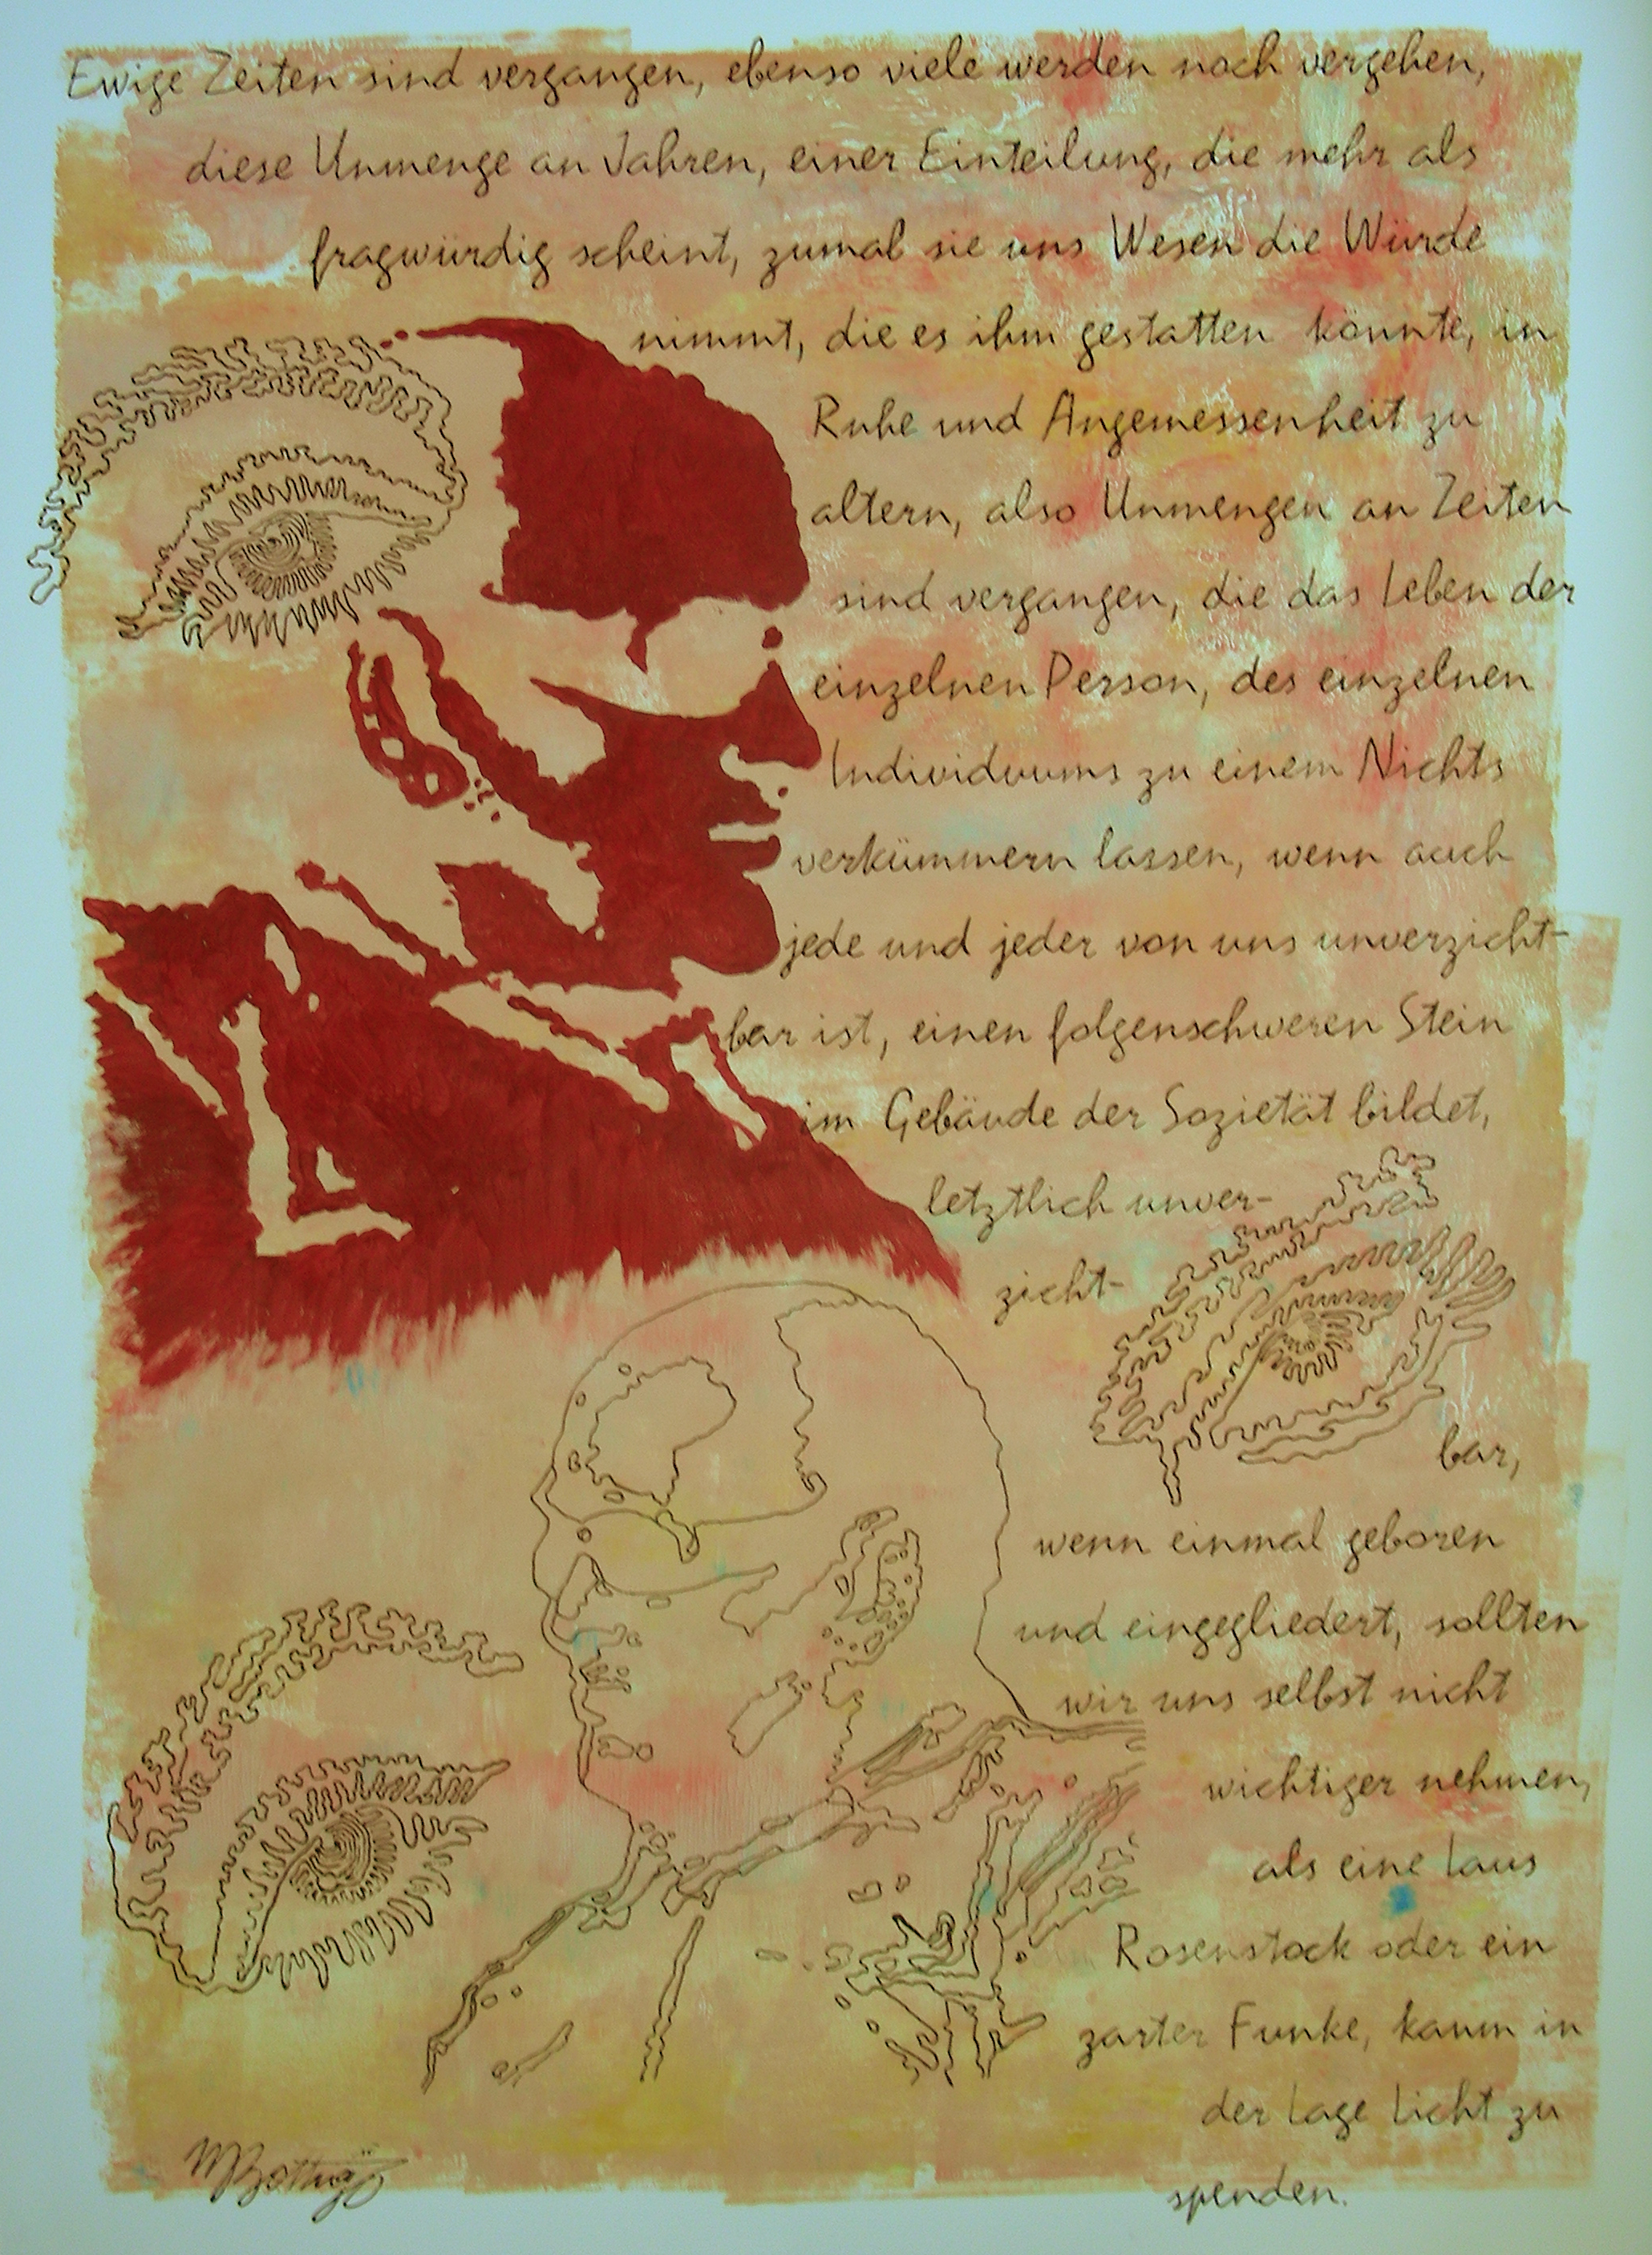 Ewige Zeiten sind vergangen, ebenso viele werden noch vergehen,
diese Unmenge an Jahren, einer Einteilung, die mehr als
fragwürdig scheint, zumal sie uns Wesen die Würde
nimmt, die es ihm gestatten könnte, in
Ruhe und Angemessenheit zu
altern, also Unmengen an Zeiten
sind vergangen, die das Leben der
einzelnen Person, des einzelnen
Individuums zu einem Nichts
verkümmern lassen, wenn auch
jede und jeder von uns unverzicht-
bar ist, einen folgenschweren Stein
im Gebäude der Sozietät bildet,
letztlich unver-
zicht-
bar,
wenn einmal geboren
und eingegliedert, sollten
wir uns selbst nicht
wichtiger nehmen,
als eine Laus
Rosenstock oder ein
zarter Funke, kaum in
der Lage Licht zu
spenden.